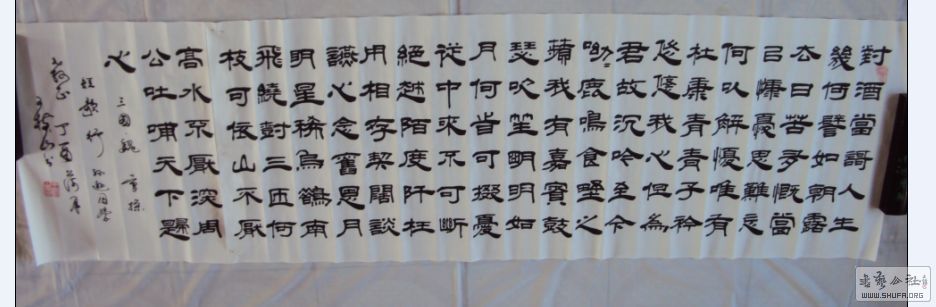 對酒當哥人生
幾何譬如朝露
去日苦多慨當
㠯慷憂思難忘
何以解憂唯有
杜康青青子衿
悠悠我心但為
君故沉吟至今
呦呦鹿鳴食壄之
蘋我有嘉賓鼓
瑟吹笙明明如
月何旹可掇憂
從中來不可斷
絕越陌度阡枉
用相存契闊談
讌心念舊恩月
明星稀烏鵲南
飛繞尌三匝何
枝可依山不厭
高水不厭深周
公吐哺天下歸
心
三國魏 曹操
短歌行 同學
正 丁酉
书艺公社
WWW.SHUFA.ORG